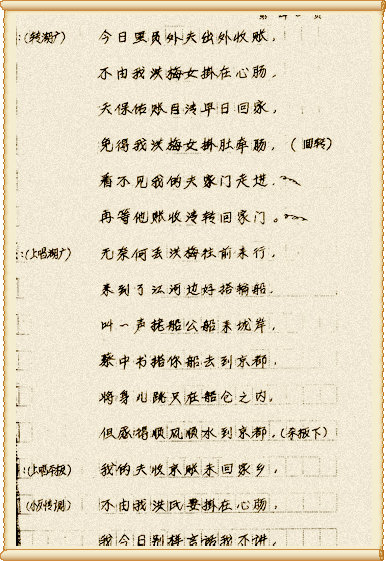 :(转湖广) 今日里员外夫出外收账,
不由我洪梅女掛在心肠,
天保佑账目清早日回家,
免得我洪梅女掛肚牵肠, (回转)
看不见我的夫家门走进
再等他账收清转回家门。
:(上唱湖广) 无奈何丢洪梅往前来行,
来到了江河边好搭稍船,
叫一声艄船公船来拢岸,
蔡中书搭你船去到京都,
将身儿跳只在船仑之内,
但愿得顺风顺水到京都,(车板下)
:(上唱平板) 我的夫收来账未回家乡,
不由我洪氏妻掛在心肠,
我今日别样言语我不讲,